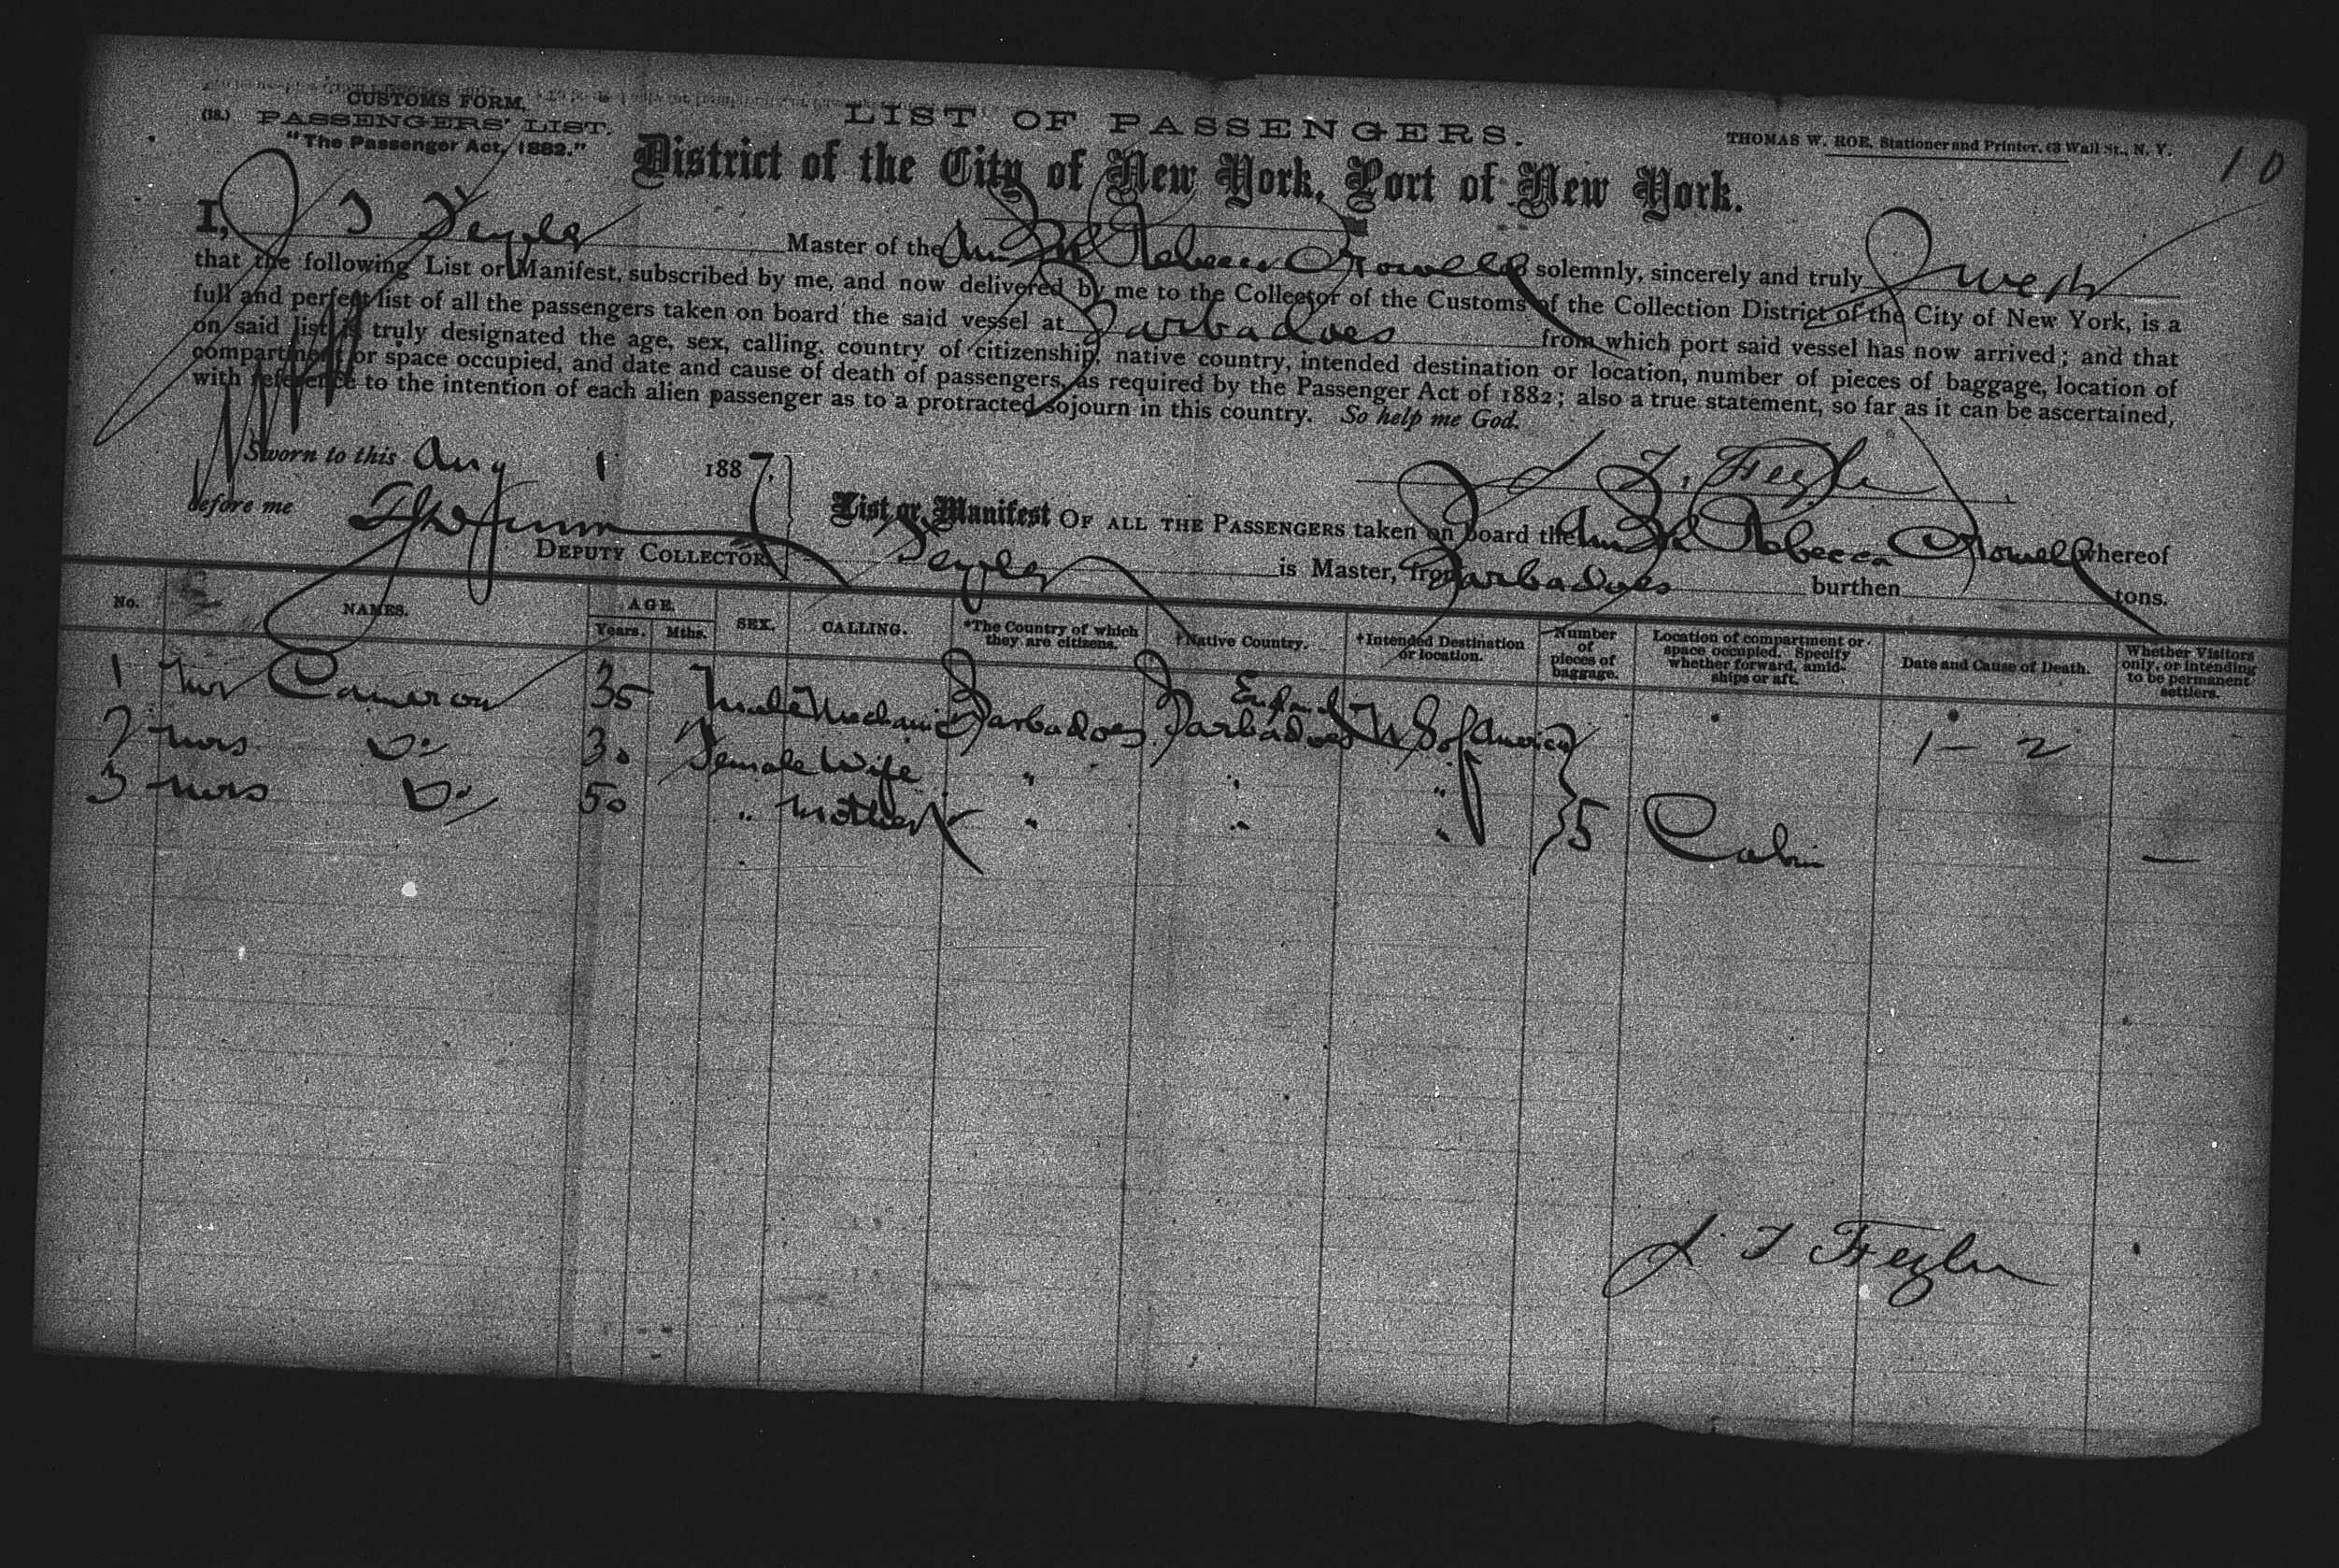 CUSTOMS FORM.
(18.) PASSENGERS' LIST.
"The Passenger Act, 1882."
LIST OF PASSENGERS.
THOMAS W. ROE, Stationer and Printer, 63 Wall St., N. Y.
10
District of the City of New York, Port of New York.
I, Master of the Rebecca Crowell do solemnly, sincerely and truly swear
that the following List or Manifest, subscribed by me, and now delivered by me to the Collector of the Customs of the Collection District of the City of New York, is a
full and perfect list of all the passengers taken on board the said vessel at Barbadoes from which port said vessel has now arrived; and that
on said list is truly designated the age, sex, calling, country of citizenship, native country, intended destination or location, number of pieces of baggage, location of
compartment or space occupied, and date and cause of death of passengers, as required by the Passenger Act of 1882; also a true statement, so far as it can be ascertained,
with reference to the intention of each alien passenger as to a protracted sojourn in this country. So help me God.
Sworn to this Aug 1 1887.
before me
DEPUTY COLLECTOR.
List or Manifest OF ALL THE PASSENGERS taken on board the Rebecca Crowell whereof
is Master, from Barbadoes burthen tons.
No. NAMES. AGE. Years. Mths. SEX. CALLING. *The Country of which they are citizens. †Native Country. †Intended Destination or location. Number of pieces of baggage. Location of compartment or space occupied. Specify whether forward, amidships or aft. Date and Cause of Death. Whether Visitors only, or intending to be permanent settlers.
England
1 Mr Cameron 35 Male Mechanic Barbadoes Barbadoes U S of America 1 - 2
2 Mrs Do 30 Female Wife " " "
3 Mrs Do 50 " Mother " " " 5 Cabin —